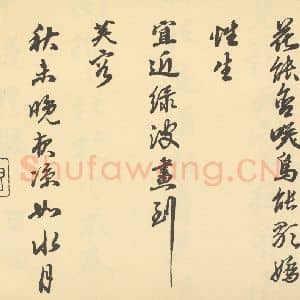 花能含咲鳥能歌嬌
性生
宜近緑波畫到
芙容
秋未晚夜涼如水月
Shufawang.CN